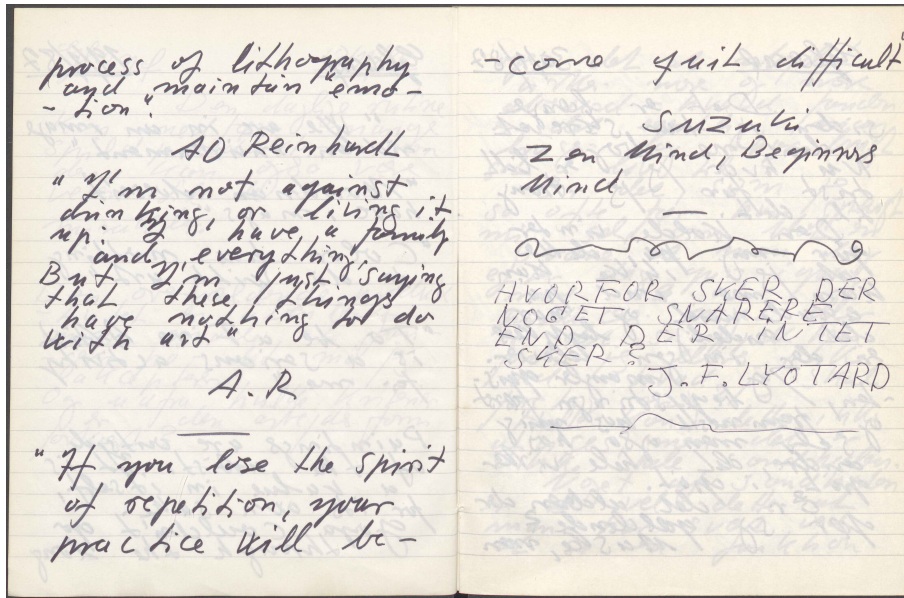 process of lithography
and "maintain "emo-
- tion".
AD Reinhardt
"I'm not against
drinking, or living it
up: I have a family
and everything,
But I'm just saying
that these things
have nothing to do
with art"
A.R
"If you lose the spirit
of repetition, your
practice will be-
-come quit difficult"
Suzuki
Zen Mind, Beginners
Mind
HVORFOR SKER DER
NOGET SNARERE
END DER INTET
SKER?
J.F. LYOTARD